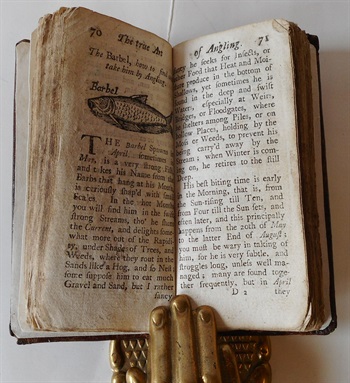 70 The true Art
The Barbel, how to
take him by Angling.
Barbel
THE Barbel Spawns
April, sometimes in
May, is a very strong Fish,
and takes his Name from the
Barbs that hang at his Mouth,
is curiously shap'd with small
Scales. In the hot Months
you will find him in the
strong Streams, tho' he shuns
the Current, and delights some-
what more out of the Rapidi-
ty, under Shade of Trees, and
Weeds, where they root in the
Sands like a Hog, and so Nest
some suppose him to eat much
Gravel and Sand, but I rather
fancy
of Angling. 71
he seeks for Insects, or
Food that Heat and Moi-
produce in the bottom of
yet sometimes he is
in the deep and swift
Water, especially at Weirs,
or Floodgates, where
Shelters among Piles, or on
Places, holding by the
or Weeds, to prevent his
being carry'd away by the
Stream; when Winter is com-
on, he retires to the still
His best biting time is early
in the Morning, that is, from
the Sun-rising till Ten, and
from Four till the Sun sets, and
often later, and this principally
happens from the 20th of May
to the latter End of August;
you must be wary in taking of
him, for he is very subtle, and
struggles long, unless well ma-
naged: many are found toge-
ther frequently, but in April
D 2 they